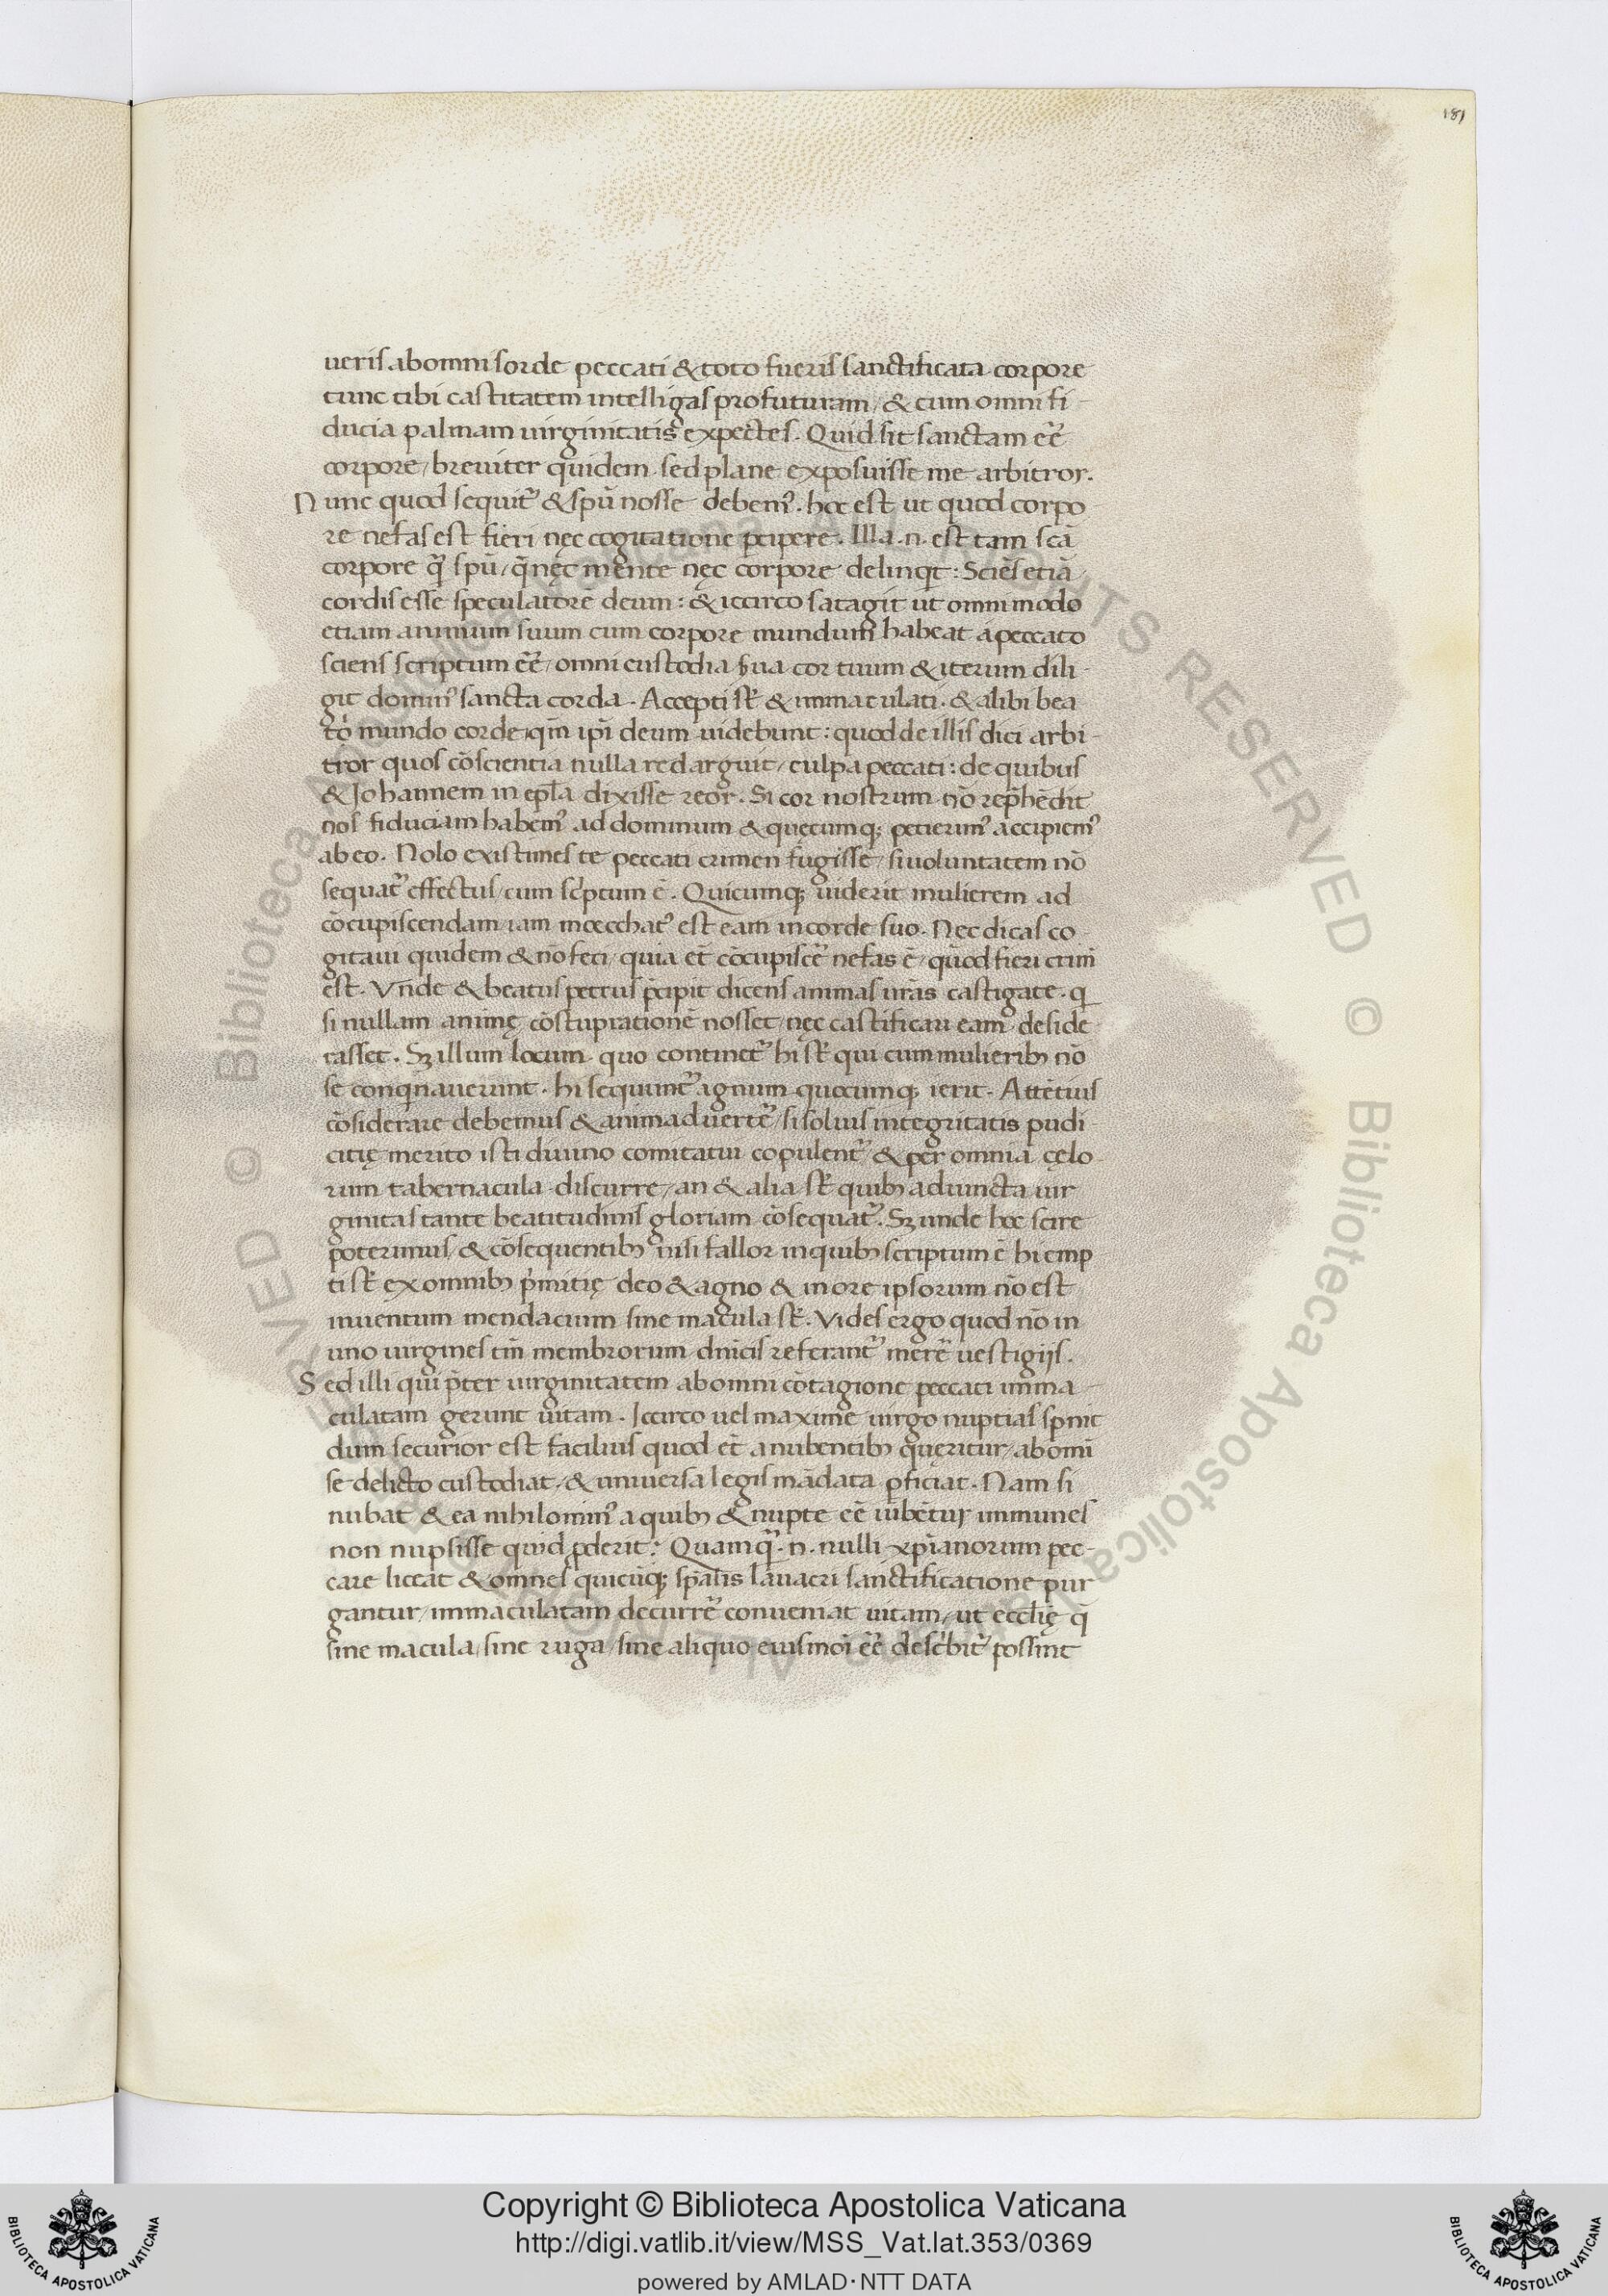 181
ueris ab omni sorde peccati & toto fueris sanctificata corpore
tunc tibi castitatem intelligas profuturam / & cum omni fi-
ducia palmam uirginitatis expectes. Quid sit sanctam eē
corpore / breuiter quidem sed plane exposuisse me arbitror.
Nunc quod sequit̃ & spũ nosse debem᾽. hoc est ut quod corpo
re nefas est fieri nęc cogitatione ꝑcipere. Illa .n. est tam scā
corpore q̃ spũ / q̄ nęc mente nęc corpore delinqt : Sciēs etiā
cordis esse speculatorē deum : & iccirco satagit ut omni modo
etiam animum suum cum corpore mundum habeat a peccato
sciens scriptum eē / omni custodia sua cor tuum & iterum dili-
git domin᾽ sancta corda. Accepti st̃ & immaculati. & alibi bea
to mundo corde qm̄ ipi deum uidebunt : quod de illis dici arbi-
tror quos cōscientia nulla redarguit / culpa peccati : de quibus
& Johannem in epl̄a dixisse reor. Si cor nostrum nō rep̄hēdit
nos fiduciam habem᾽ ad dominum & quęcumq; petierim᾽ accipiem᾽
ab eo. Nolo existimes te peccati crimen fugisse / si uoluntatem nō
sequat̃ effectus / cum sc̓ptum ē. Quicumq; uiderit mulierem ad
cōcupiscendam iam moecchat᾽ est eam in corde suo. Nec dicas co-
gitaui quidem & nō feci / quia et̄ cōcupiscē nefas ē / quod fieri crim̄
est. Vnde & beatus petrus p̄cipit dicens animas ur̄as castigate. q
si nullam animę cōstuprationē nosset / nęc castificari eam deside
rasset. Sꝫ illum locum quo continet̃ hi st̃ qui cum mulierib; nō
se conqnauerunt. hi sequunt̃ agnum quocumq; ierit. Attētius
cōsiderare debemus & animaduertē / si solius integritatis pudi-
citię merito isti diuino comitatui copulent̃ & per omnia cęlo-
rum tabernacula discurre / an & alia st̃ quib; adiuncta uir
ginitas tante beatitudinis gloriam cōsequat̃. Sꝫ unde hoc scire
poterimus / & cōsequentib; nisi fallor in quib; scriptum ē hi emp
ti st̃ ex omnib; p̓mitię deo & agno & in ore ipsorum nō est
inuentum mendacium sine macula st̃. Vides ergo quod nō in
uno uirgines tm̄ membrorum dn̄icis referant̃ merē uestigijs.
Sed illi qui p̄ter uirginitatem ab omni cōtagione peccati imma-
culatam gerunt uitam. Iccirco uel maxime uirgo nuptias spnit
dum securior est facilius quod et̄ a nubentib; quęritur / ab omi
se delicto custodiat / & uniuersa legis mādata ꝑficiat. Nam si
nubat & ea nihilomin᾽ a quib; & nupte eē iubētur immunes
non nupsisse quid ꝓderit : Quamq̃ .n. nulli xp̄ianorum pec-
care liceat & omnes quicūq; sp̄alis lauacri sanctificatione pur
gantur / immaculatam decurrē conueniat uitam / ut eccl̄ię q̄
sine macula / sine ruga / sine aliquo eiusmōi eē desc̓bit̃ possint
Copyright © Biblioteca Apostolica Vaticana
http://digi.vatlib.it/view/MSS_Vat.lat.353/0369
powered by AMLAD·NTT DATA